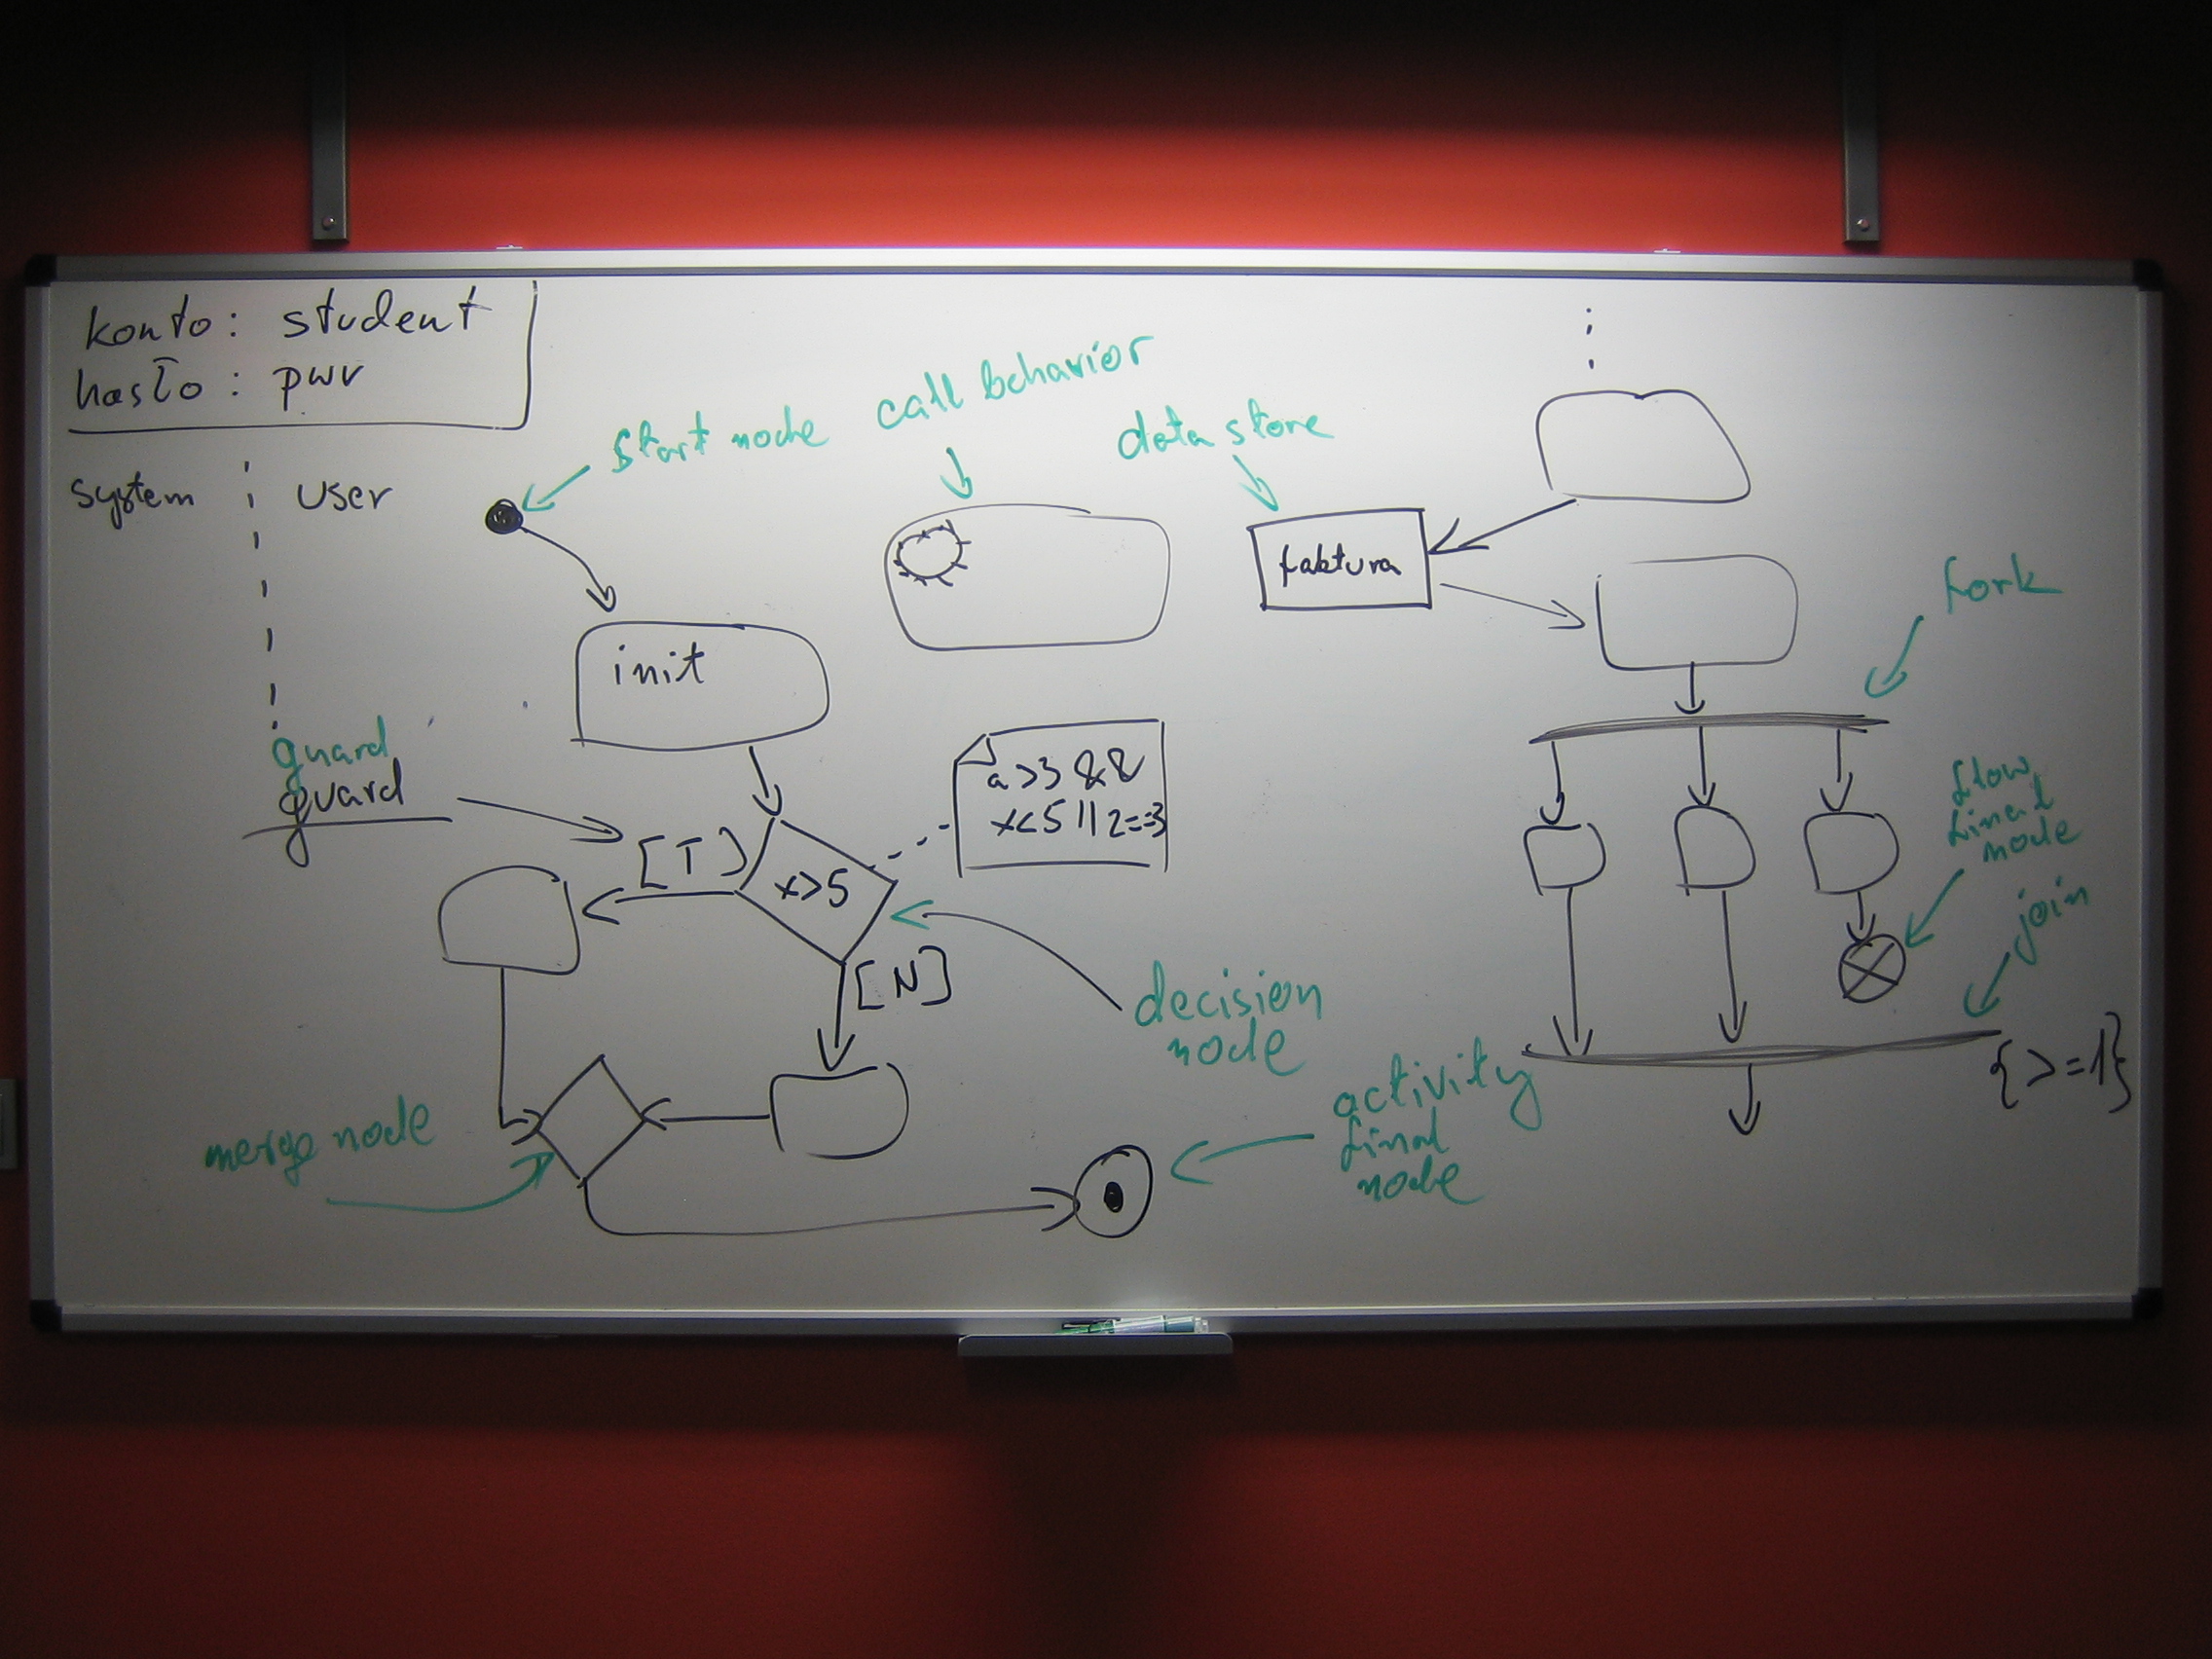 konto: student
hasło: pwr
system
user
start node
call behavior
data store
init
faktura
fork
guard
guard
[T]
x>5
a>3 &&
x<5 || z==3
[N]
decision
node
merge node
activity
final
node
flow
final
node
join
{>=1}